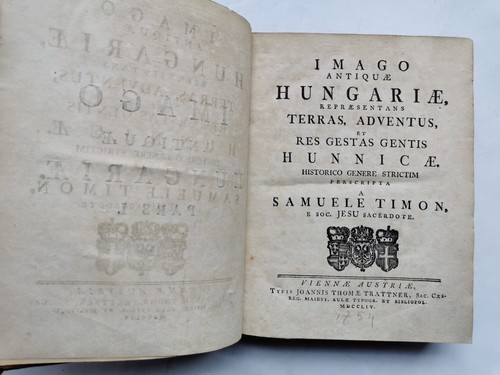 IMAGO
ANTIQUÆ
HUNGARIÆ,
REPRÆSENTANS
TERRAS, ADVENTUS,
ET
RES GESTAS GENTIS
HUNNICÆ.
HISTORICO GENERE STRICTIM
PERSCRIPTA
A
SAMUELE TIMON,
E SOC. JESU SACERDOTE.
VIENNÆ AUSTRIÆ,
TYPIS JOANNIS THOMÆ TRATTNER, SAC. CÆS.
REG. MAJEST. AULÆ TYPOGR. ET BIBLIOPOL.
MDCCLIV.
1754